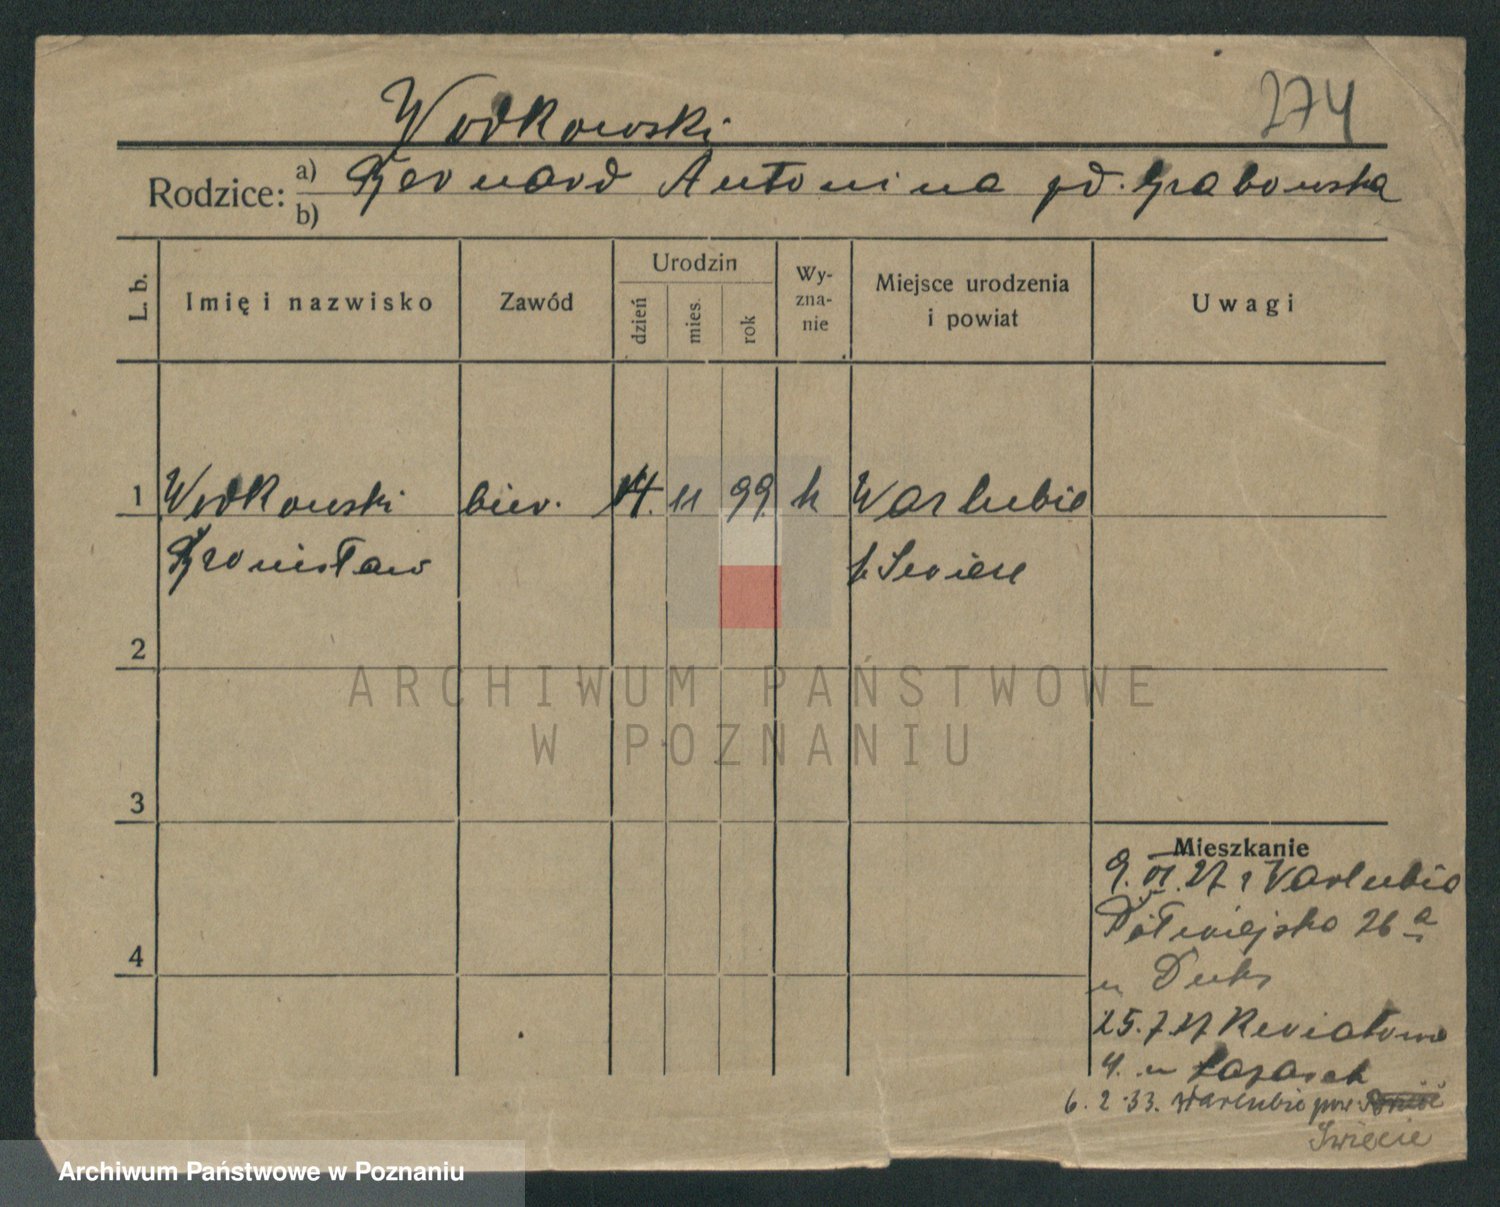 274
Wodkowski
Rodzice: a) Bernard Antonina zd. Grabowska
b)
L. b.
Imię i nazwisko
Zawód
Urodzin
dzień
mies.
rok
Wy-
zna-
nie
Miejsce urodzenia
i powiat
Uwagi
1 Wodkowski biur. 14. 11 99. k Warlubie
Bronisław p. Świecie
2
3
4
ARCHIWUM PAŃSTWOWE
W POZNANIU
Mieszkanie
9. VI. 27 z Warlubie
Półwiejska 26 a
u
25. 7. 27 Kwiatowa
4. u
6. 2. 33. Warlubie pow.
Świecie
Archiwum Państwowe w Poznaniu